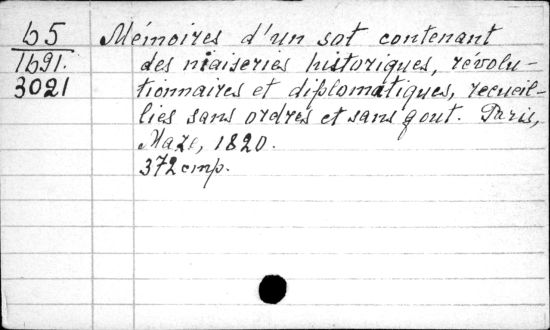 65 Mémoires d'un sot contenant
1691. des niaiseries historiques, révolu-
3021 tionnaires et diplomatiques, recueil-
lies sans ordres et sans gout. Paris,
Maze, 1820.
372 стр.